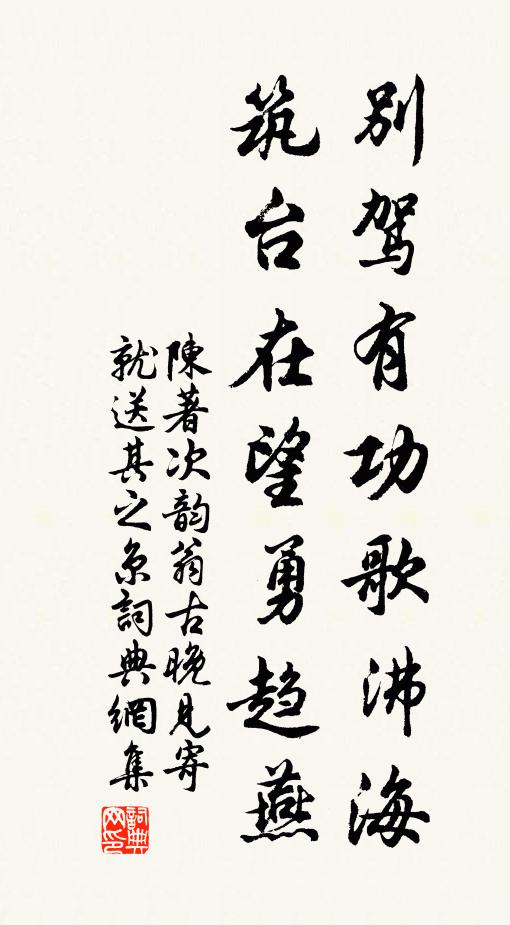 别驾有功歌沸海
筑台在望勇趋燕
陳著次韵翁古晚见寄
就送其之京詞典網集
詞典网印